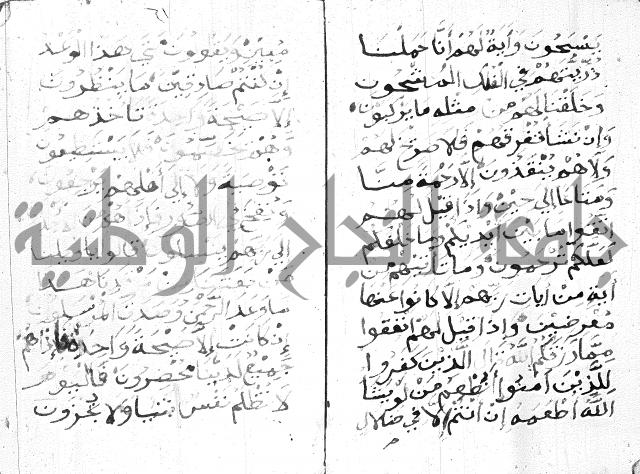 يسبحون وآية لهم أنا حملنا
ذريتهم في الفلك المشحون
وخلقنا لهم من مثله ما يركبون
وان نشأ نغرقهم فلا صريخ لهم
ولا هم ينقذون إلا رحمة منا
ومتاعا الى حين واذا قيل لهم
اتقوا ما بين أيديكم وما خلفكم
لعلكم ترحمون وما تأتيهم من
آية من آيات ربهم إلا كانوا عنها
معرضين واذا قيل لهم انفقوا
مما رزقكم الله قال الذين كفروا
للذين آمنوا أنطعم من لو يشا
الله أطعمه إن أنتم إلا في ضلال
مبين ويقولون متى هذا الوعد
إن كنتم صادقين ما ينظرون
إلا صيحة واحدة تاخذهم
وهم يخصمون فلا يستطيعون
توصية ولا إلى أهلهم يرجعون
ونفخ في الصور فإذا هم
الى ربهم ينسلون قالوا يا ويلنا
من بعثنا هذا
ما وعد الرحمن وصدق المرسلون
إن كانت إلا صيحة واحدة فإذا هم
جميع لدينا محضرون فاليوم
لا تظلم نفس شيا ولا تجزون
جامعة النجاح الوطنية